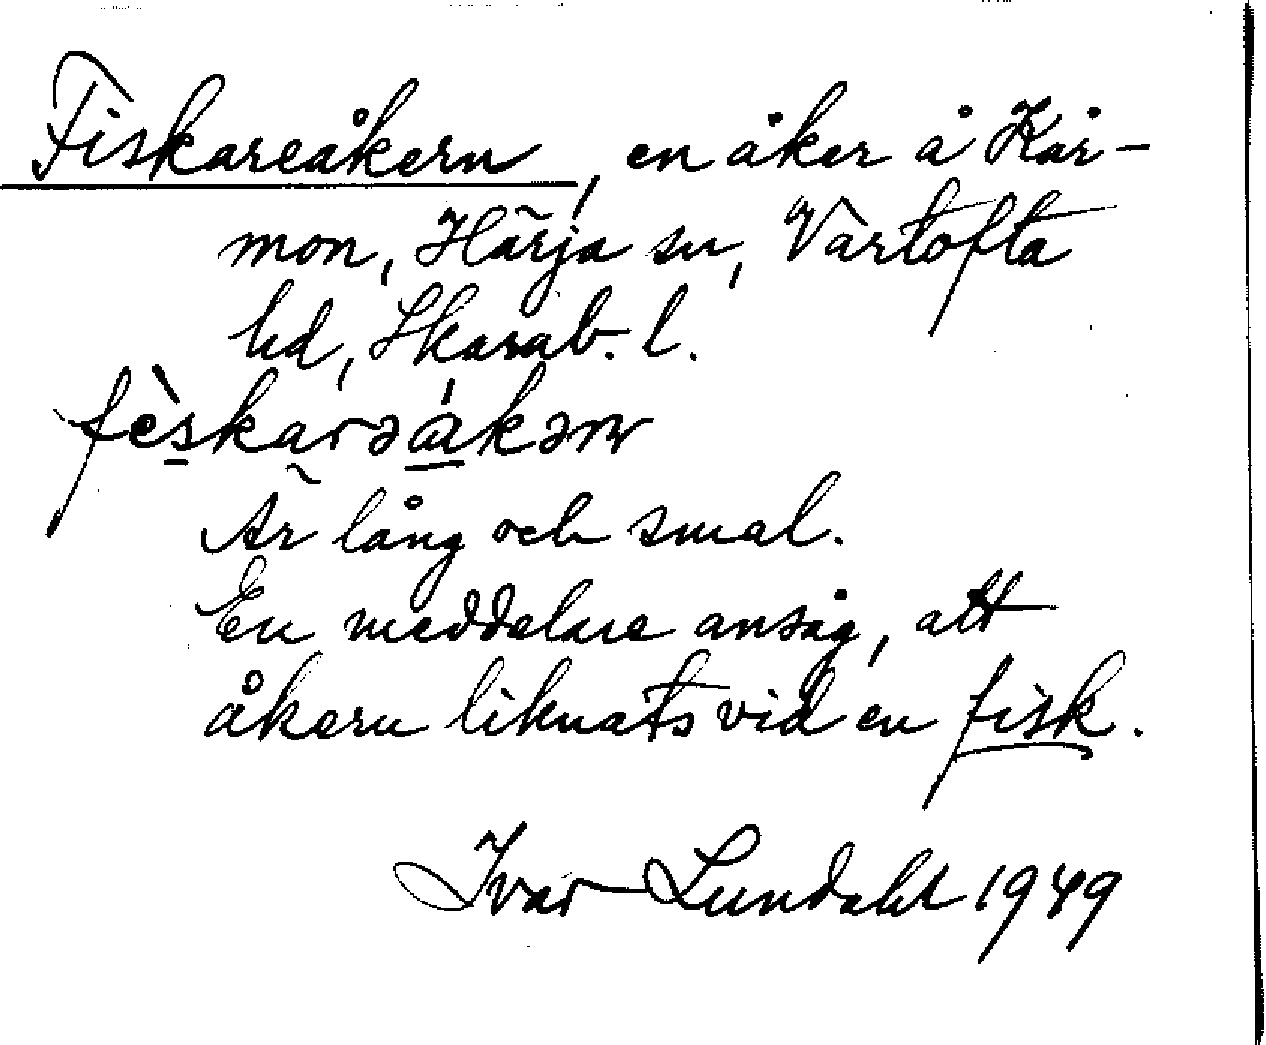 Fiskareåkern, en åker å Kår-
mon, Härja sn, Vartofta
hd, Skarab. l.
fèskarəákəɳ
Är lång och smal.
En meddelare ansåg, att
åkern liknats vid en fisk.
Ivar Lundahl 1949